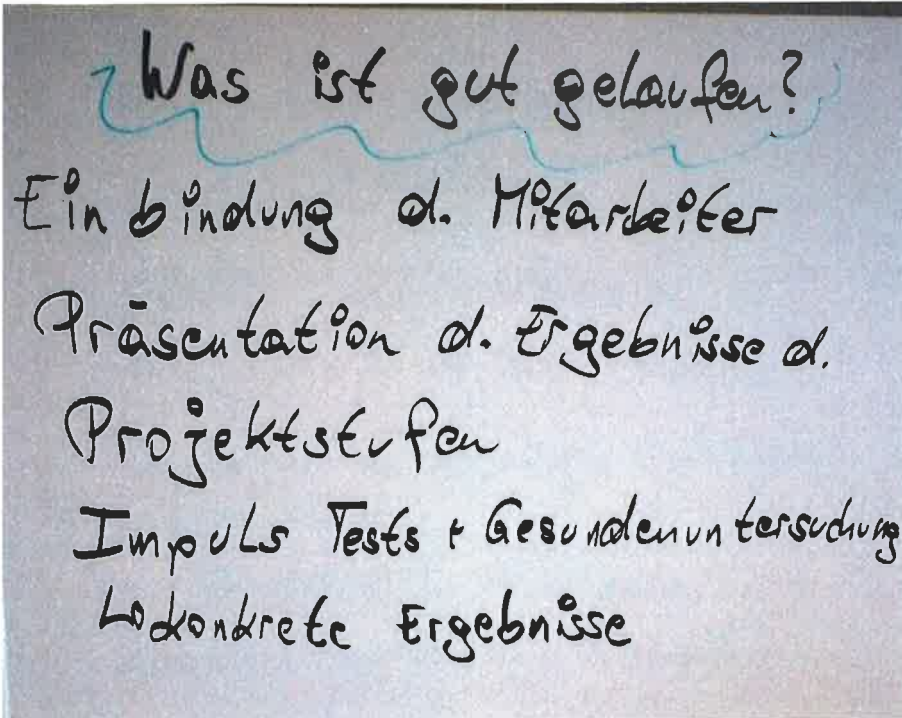 Was ist gut gelaufen?
Einbindung d. Mitarbeiter
Präsentation d. Ergebnisse d.
Projektstufen
Impuls Tests + Gesundenuntersuchung
↳ konkrete Ergebnisse